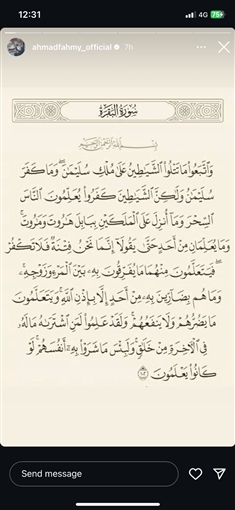 12:31
4G 75
ahmadfahmy_official 7h
سُورَةُ البَقَرَةِ
بِسْمِ اللَّهِ الرَّحْمَٰنِ الرَّحِيمِ
وَاتَّبَعُوا مَا تَتْلُو الشَّيَاطِينُ عَلَىٰ مُلْكِ سُلَيْمَانَ ۖ وَمَا كَفَرَ
سُلَيْمَانُ وَلَٰكِنَّ الشَّيَاطِينَ كَفَرُوا يُعَلِّمُونَ النَّاسَ
السِّحْرَ وَمَا أُنزِلَ عَلَى الْمَلَكَيْنِ بِبَابِلَ هَارُوتَ وَمَارُوتَ ۚ
وَمَا يُعَلِّمَانِ مِنْ أَحَدٍ حَتَّىٰ يَقُولَا إِنَّمَا نَحْنُ فِتْنَةٌ فَلَا تَكْفُرْ ۖ
فَيَتَعَلَّمُونَ مِنْهُمَا مَا يُفَرِّقُونَ بِهِ بَيْنَ الْمَرْءِ وَزَوْجِهِ ۚ
وَمَا هُم بِضَارِّينَ بِهِ مِنْ أَحَدٍ إِلَّا بِإِذْنِ اللَّهِ ۚ وَيَتَعَلَّمُونَ
مَا يَضُرُّهُمْ وَلَا يَنفَعُهُمْ ۚ وَلَقَدْ عَلِمُوا لَمَنِ اشْتَرَاهُ مَا لَهُ
فِي الْآخِرَةِ مِنْ خَلَاقٍ ۚ وَلَبِئْسَ مَا شَرَوْا بِهِ أَنفُسَهُمْ ۚ لَوْ
كَانُوا يَعْلَمُونَ ١٠٢
Send message